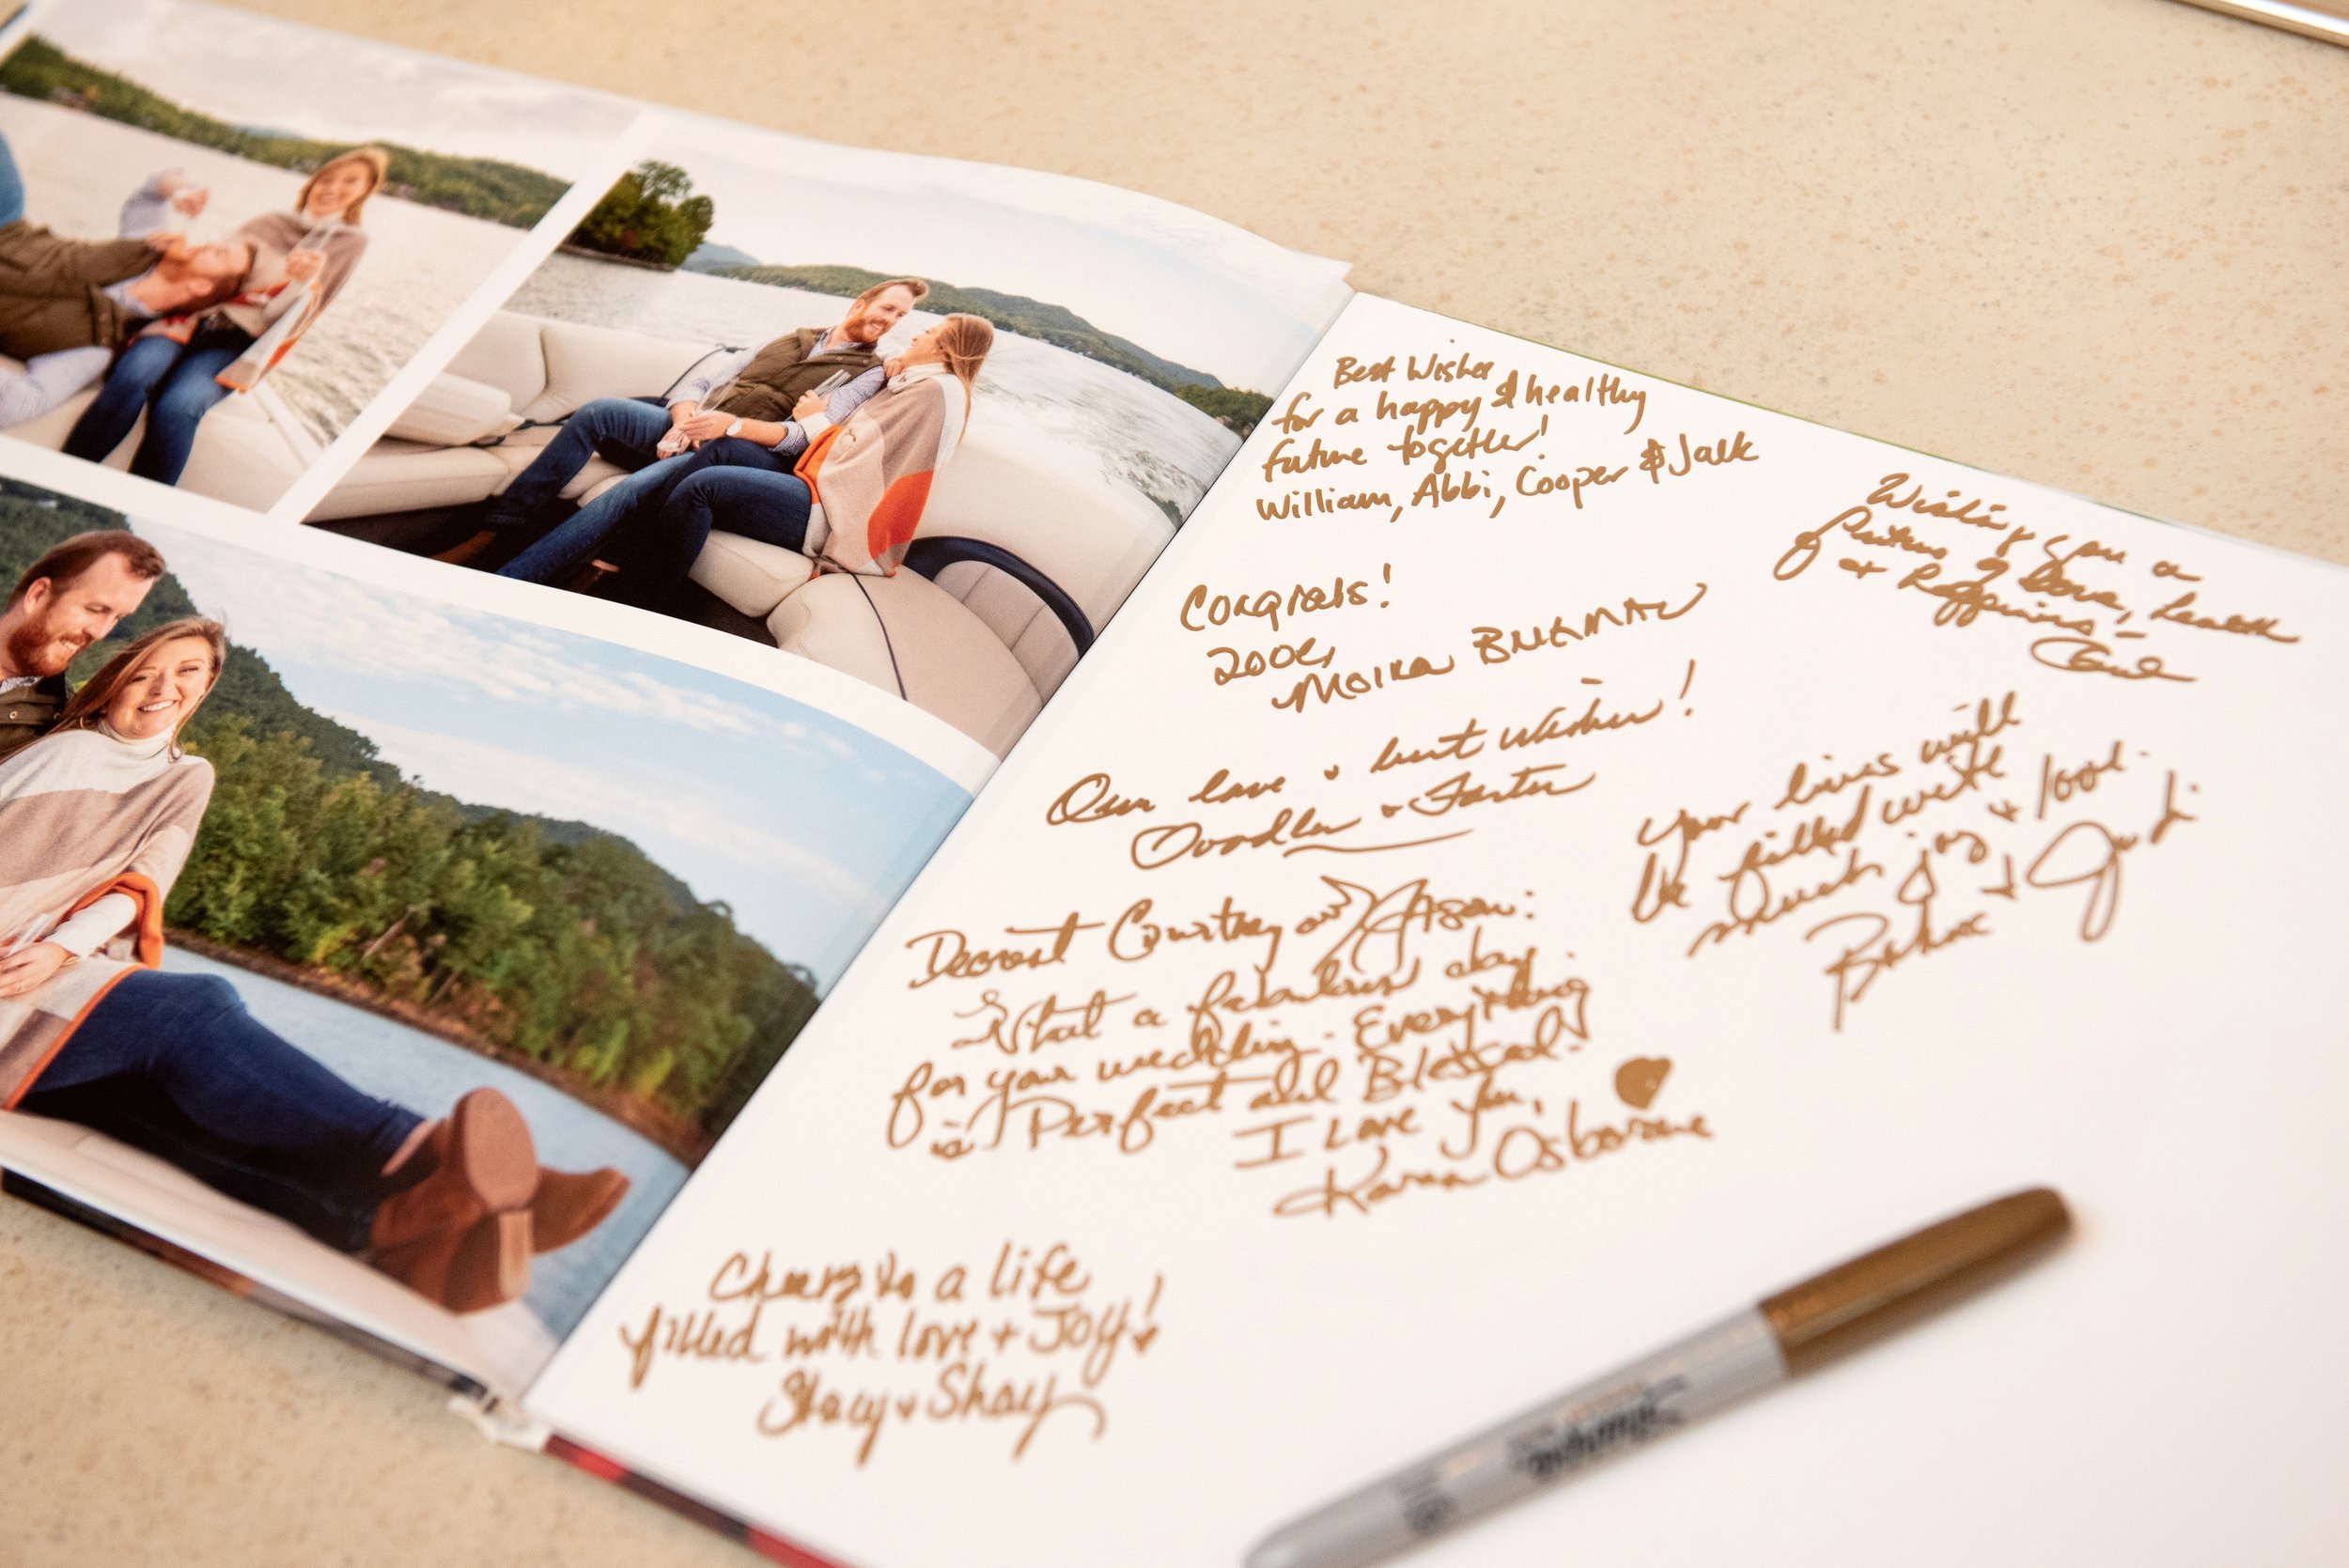 Best Wishes
for a happy & healthy
future together!
William, Abbi, Cooper & Jack
Congrats!
Moira
Our love & best wishes!
& Foster
Dearest Courtney and Jason:
What a fabulous day
for your wedding. Everything
is Perfect and Blessed!
I Love You,
Karen Osborne
Cheers to a life
filled with love + Joy!
Stacy & Shay
Wishing you a
future of love, health
& Happiness –
your lives will
be filled with
much joy & love.
& Judi
Sharpie